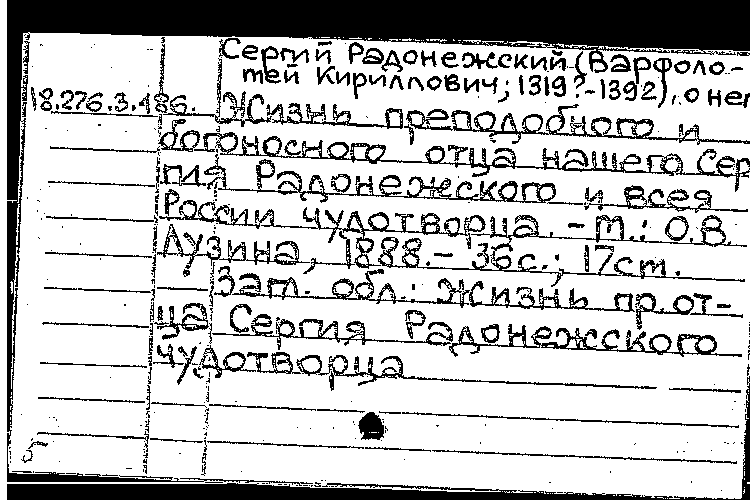 Сергий Радонежский (Варфоло-
мей Кириллович; 1319?-1392), о нем
18.276.3.486. Жизнь преподобного и
богоносного отца нашего Сер
гия Радонежского и всея
России чудотворца. - М.: О.В.
Лузина, 1888.- 36с.; 17см.
Заг. обл.: Жизнь пр. от-
ца Сергия Радонежского
чудотворца
5